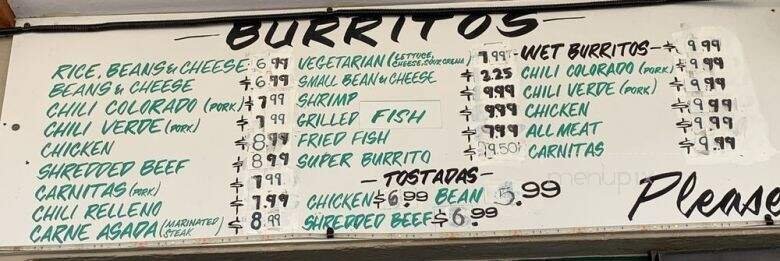 BURRITOS
RICE, BEANS & CHEESE 6.99
BEANS & CHEESE $6.99
CHILI COLORADO (PORK) $7.99
CHILI VERDE (PORK) $7.99
CHICKEN $8.99
SHREDDED BEEF $8.99
CARNITAS (PORK) $7.99
CHILI RELLENO $7.99
CARNE ASADA (MARINATED STEAK $8.99
VEGETARIAN (LETTUCE, CHEESE, SOUR CREAM) 7.99
SMALL BEAN & CHEESE $2.25
SHRIMP $9.99
GRILLED FISH $9.99
FRIED FISH $7.99
SUPER BURRITO
-WET BURRITOS- $9.99
CHILI COLORADO (PORK) $9.99
CHILI VERDE (PORK) $9.99
CHICKEN $9.99
ALL MEAT $9.99
CARNITAS $9.99
-TOSTADAS-
CHICKEN $6.99 BEAN 5.99
SHREDDED BEEF $6.99
Please